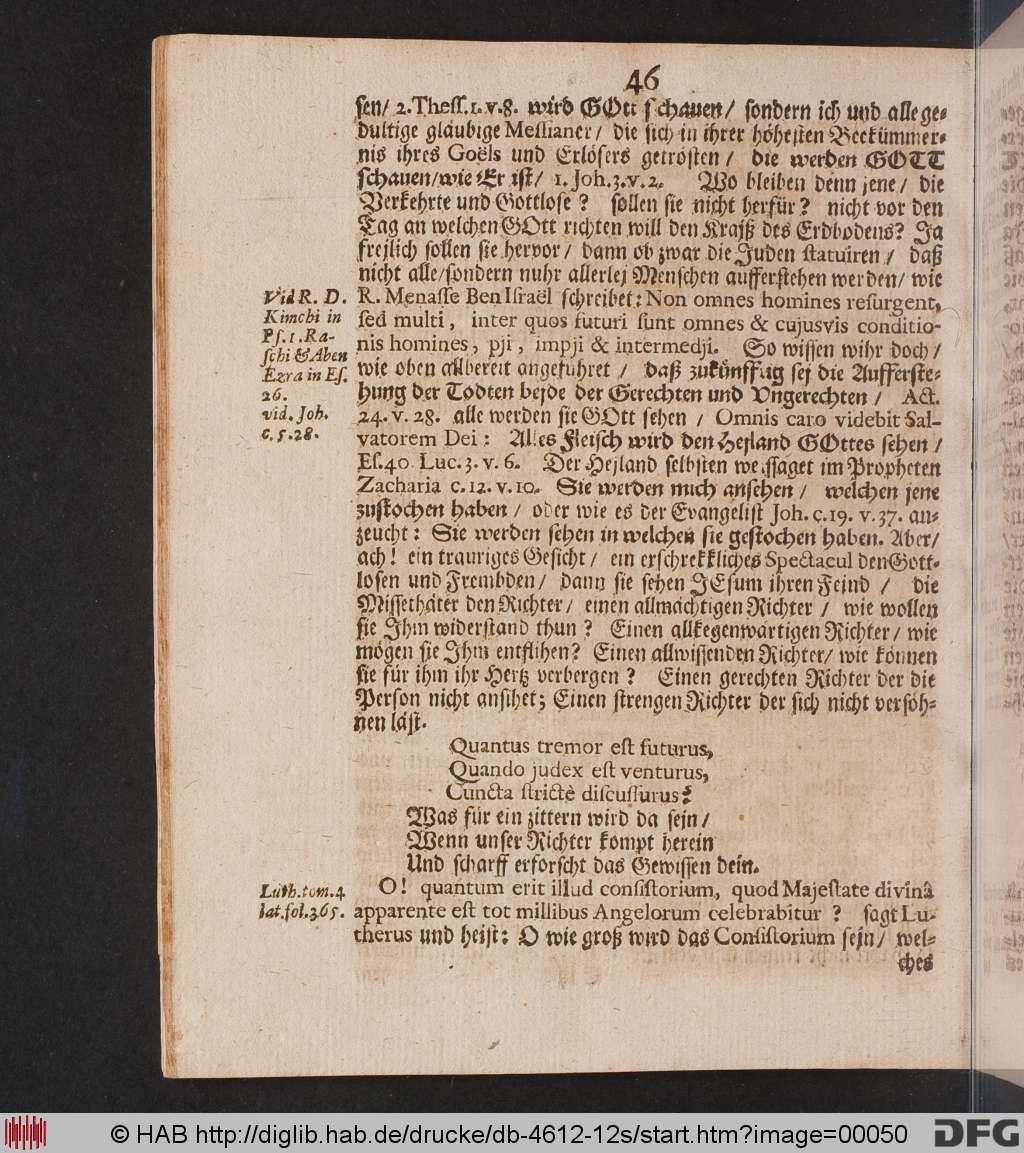 46
sen/ 2. Thess. 1. v. 8. wird GOtt schauen/ sondern ich und alle ge-
dultige gläubige Messianer/ die sich in ihrer höhesten Beekümmer-
nis ihres Goëls und Erlösers getrösten/ die werden GOTT
schauen/ wie Er ist/ 1. Joh. 3. v. 2. Wo bleiben denn jene/ die
Verkehrte und Gottlose? sollen sie nicht herfür? nicht vor den
Tag an welchen GOtt richten will den Kraiß des Erdbodens? Ja
freilich sollen sie hervor/ dann ob zwar die Juden statuiren/ daß
nicht alle/ sondern nuhr allerlej Menschen aufferstehen werden/ wie
R. Menasse Ben Israël schreibet: Non omnes homines resurgent,
sed multi, inter quos futuri sunt omnes & cujusvis conditio-
nis homines, pji, impji & intermedji. So wissen wihr doch/
wie oben allbereit angeführet/ daß zukünfftig sej die Aufferste-
hung der Todten bejde der Gerechten und Ungerechten/ Act.
24. v. 28. alle werden sie GOtt sehen/ Omnis caro videbit Sal-
vatorem Dei: Alles Fleisch wird den Hejland GOttes sehen/
Es. 40 Luc. 3. v. 6. Der Hejland selbsten weissaget im Propheten
Zacharia c. 12. v. 10. Sie werden mich ansehen/ welchen jene
zustochen haben/ oder wie es der Evangelist Joh. c. 19. v. 37. an-
zeucht: Sie werden sehen in welchen sie gestochen haben. Aber/
ach! ein trauriges Gesicht/ ein erschrekkliches Spectacul den Gott-
losen und Frembden/ dann sie sehen JEsum ihren Fejnd/ die
Missethäter den Richter/ einen allmächtigen Richter/ wie wollen
sie Ihm widerstand thun? Einen allkegenwärtigen Richter/ wie
mögen sie Ihm entflihen? Einen allwissenden Richter/ wie können
sie für ihm ihr Hertz verbergen? Einen gerechten Richter der die
Person nicht ansihet; Einen strengen Richter der sich nicht versöh-
nen läst.
Quantus tremor est futurus,
Quando judex est venturus,
Cuncta strictè discussurus?
Was für ein zittern wird da sejn/
Wenn unser Richter kompt herein
Und scharff erforscht das Gewissen dein.
O! quantum erit illud consistorium, quod Majestate divinâ
apparente est tot millibus Angelorum celebrabitur? sagt Lu-
therus und heist: O wie groß wird das Consistorium sejn/ wel-
ches
Vid R. D.
Kimchi in
Ps. 1. Ra-
schi & Aben
Ezra in Es.
26.
vid. Joh.
c. 5. 28.
Luth. tom. 4
lat. fol. 365.
© HAB http://diglib.hab.de/drucke/db-4612-12s/start.htm?image=00050
DFG